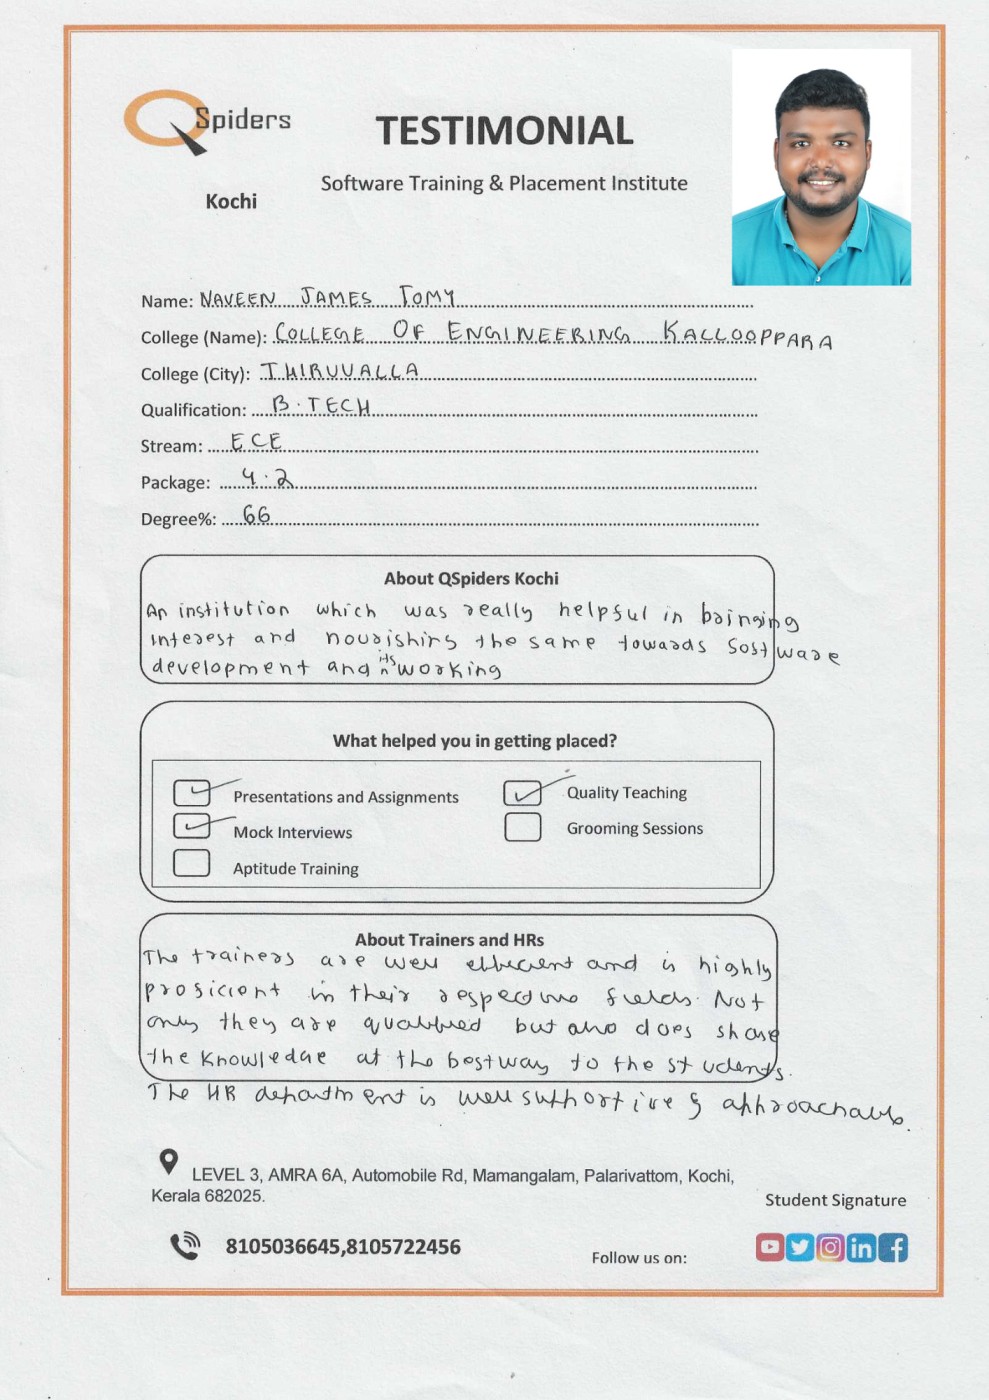 QSpiders
Kochi
TESTIMONIAL
Software Training & Placement Institute
Name: NAVEEN JAMES TOMY
College (Name): COLLEGE OF ENGINEERING KALLOOPPARA
College (City): THIRUVALLA
Qualification: B.TECH
Stream: ECE
Package: 4.2
Degree%: 66
About QSpiders Kochi
An institution which was really helpful in bringing
interest and nourishing the same towards software
development and its working
What helped you in getting placed?
Presentations and Assignments
Quality Teaching
Mock Interviews
Grooming Sessions
Aptitude Training
About Trainers and HRs
The trainers are well efficient and is highly
proficient in their respective fields. Not
only they are qualified but also does share
the knowledge at the best way to the students.
The HR department is well supportive & approachable.
LEVEL 3, AMRA 6A, Automobile Rd, Mamangalam, Palarivattom, Kochi,
Kerala 682025.
Student Signature
8105036645,8105722456
Follow us on: